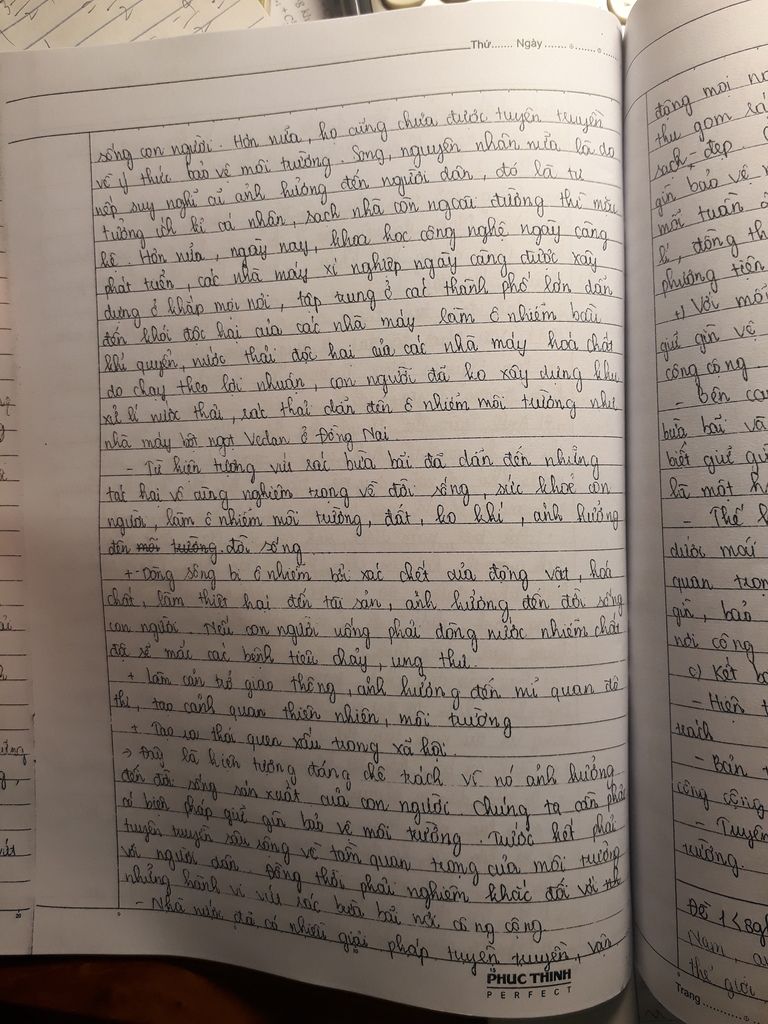 Thứ....... Ngày
sống con người. Hơn nữa, họ cũng chưa được tuyên truyền
về ý thức bảo vệ môi trường. Song, nguyên nhân nữa là do
nếp suy nghĩ cũ ảnh hưởng đến người dân, đó là tư
tưởng ích kỉ cá nhân, sạch nhà còn ngoài đường thì mặc
kệ. Hơn nữa, ngày nay, khoa học công nghệ ngày càng
phát triển, các nhà máy xí nghiệp ngày càng được xây
dựng ở khắp mọi nơi, tập trung ở các thành phố lớn dẫn
đến khói độc hại của các nhà máy làm ô nhiễm bầu
khí quyển, nước thải độc hại của các nhà máy hoá chất
do chạy theo lợi nhuận, con người đã ko xây dựng khu
xử lí nước thải, rác thải dẫn đến ô nhiễm môi trường như
nhà máy bột ngọt Vedan ở Đồng Nai.
- Từ hiện tượng vứt rác bừa bãi đã dẫn đến những
tác hại vô cùng nghiêm trọng về đời sống, sức khoẻ con
người, làm ô nhiễm môi trường, đất, ko khí, ảnh hưởng
đến môi trường đời sống
+ Dòng sông bị ô nhiễm bởi xác chết của động vật, hoá
chất, làm thiệt hại đến tài sản, ảnh hưởng đến đời sống
con người. Nếu con người uống phải dòng nước nhiễm chất
độc sẽ mắc các bệnh tiêu chảy, ung thư.
+ Làm cản trở giao thông, ảnh hưởng đến mĩ quan đô
thị, tạo cảnh quan thiên nhiên, môi trường
+ Tạo ra thói quen xấu trong xã hội.
→ Đây là hiện tượng đáng chê trách vì nó ảnh hưởng
đến đời sống sản xuất của con người. Chúng ta cần phải
có biện pháp giữ gìn bảo vệ môi trường. Trước hết phải
tuyên truyền sâu rộng về tầm quan trọng của môi trường
với người dân. Đồng thời phải nghiêm khắc đối với
những hành vi vứt rác bừa bãi nơi công cộng.
- Nhà nước đã có nhiều giải pháp tuyên truyền, vận
PHUC THINH
PERFECT
động mọi
thu gom
sạch - đẹp.
gìn bảo vệ
mỗi tuần
lí, đồng
phương tiện
+) Với mỗi
giữ gìn vệ
công cộng.
- Bên
bừa bãi
biết giữ
là một
- Thế
dưới mái
quan trọng
gìn, bảo
nơi công
c) Kết
- Hiện
trách
- Bản
công cộng
- Tuyên
trường.
Đề 1
Nam,
thế giới
Trang